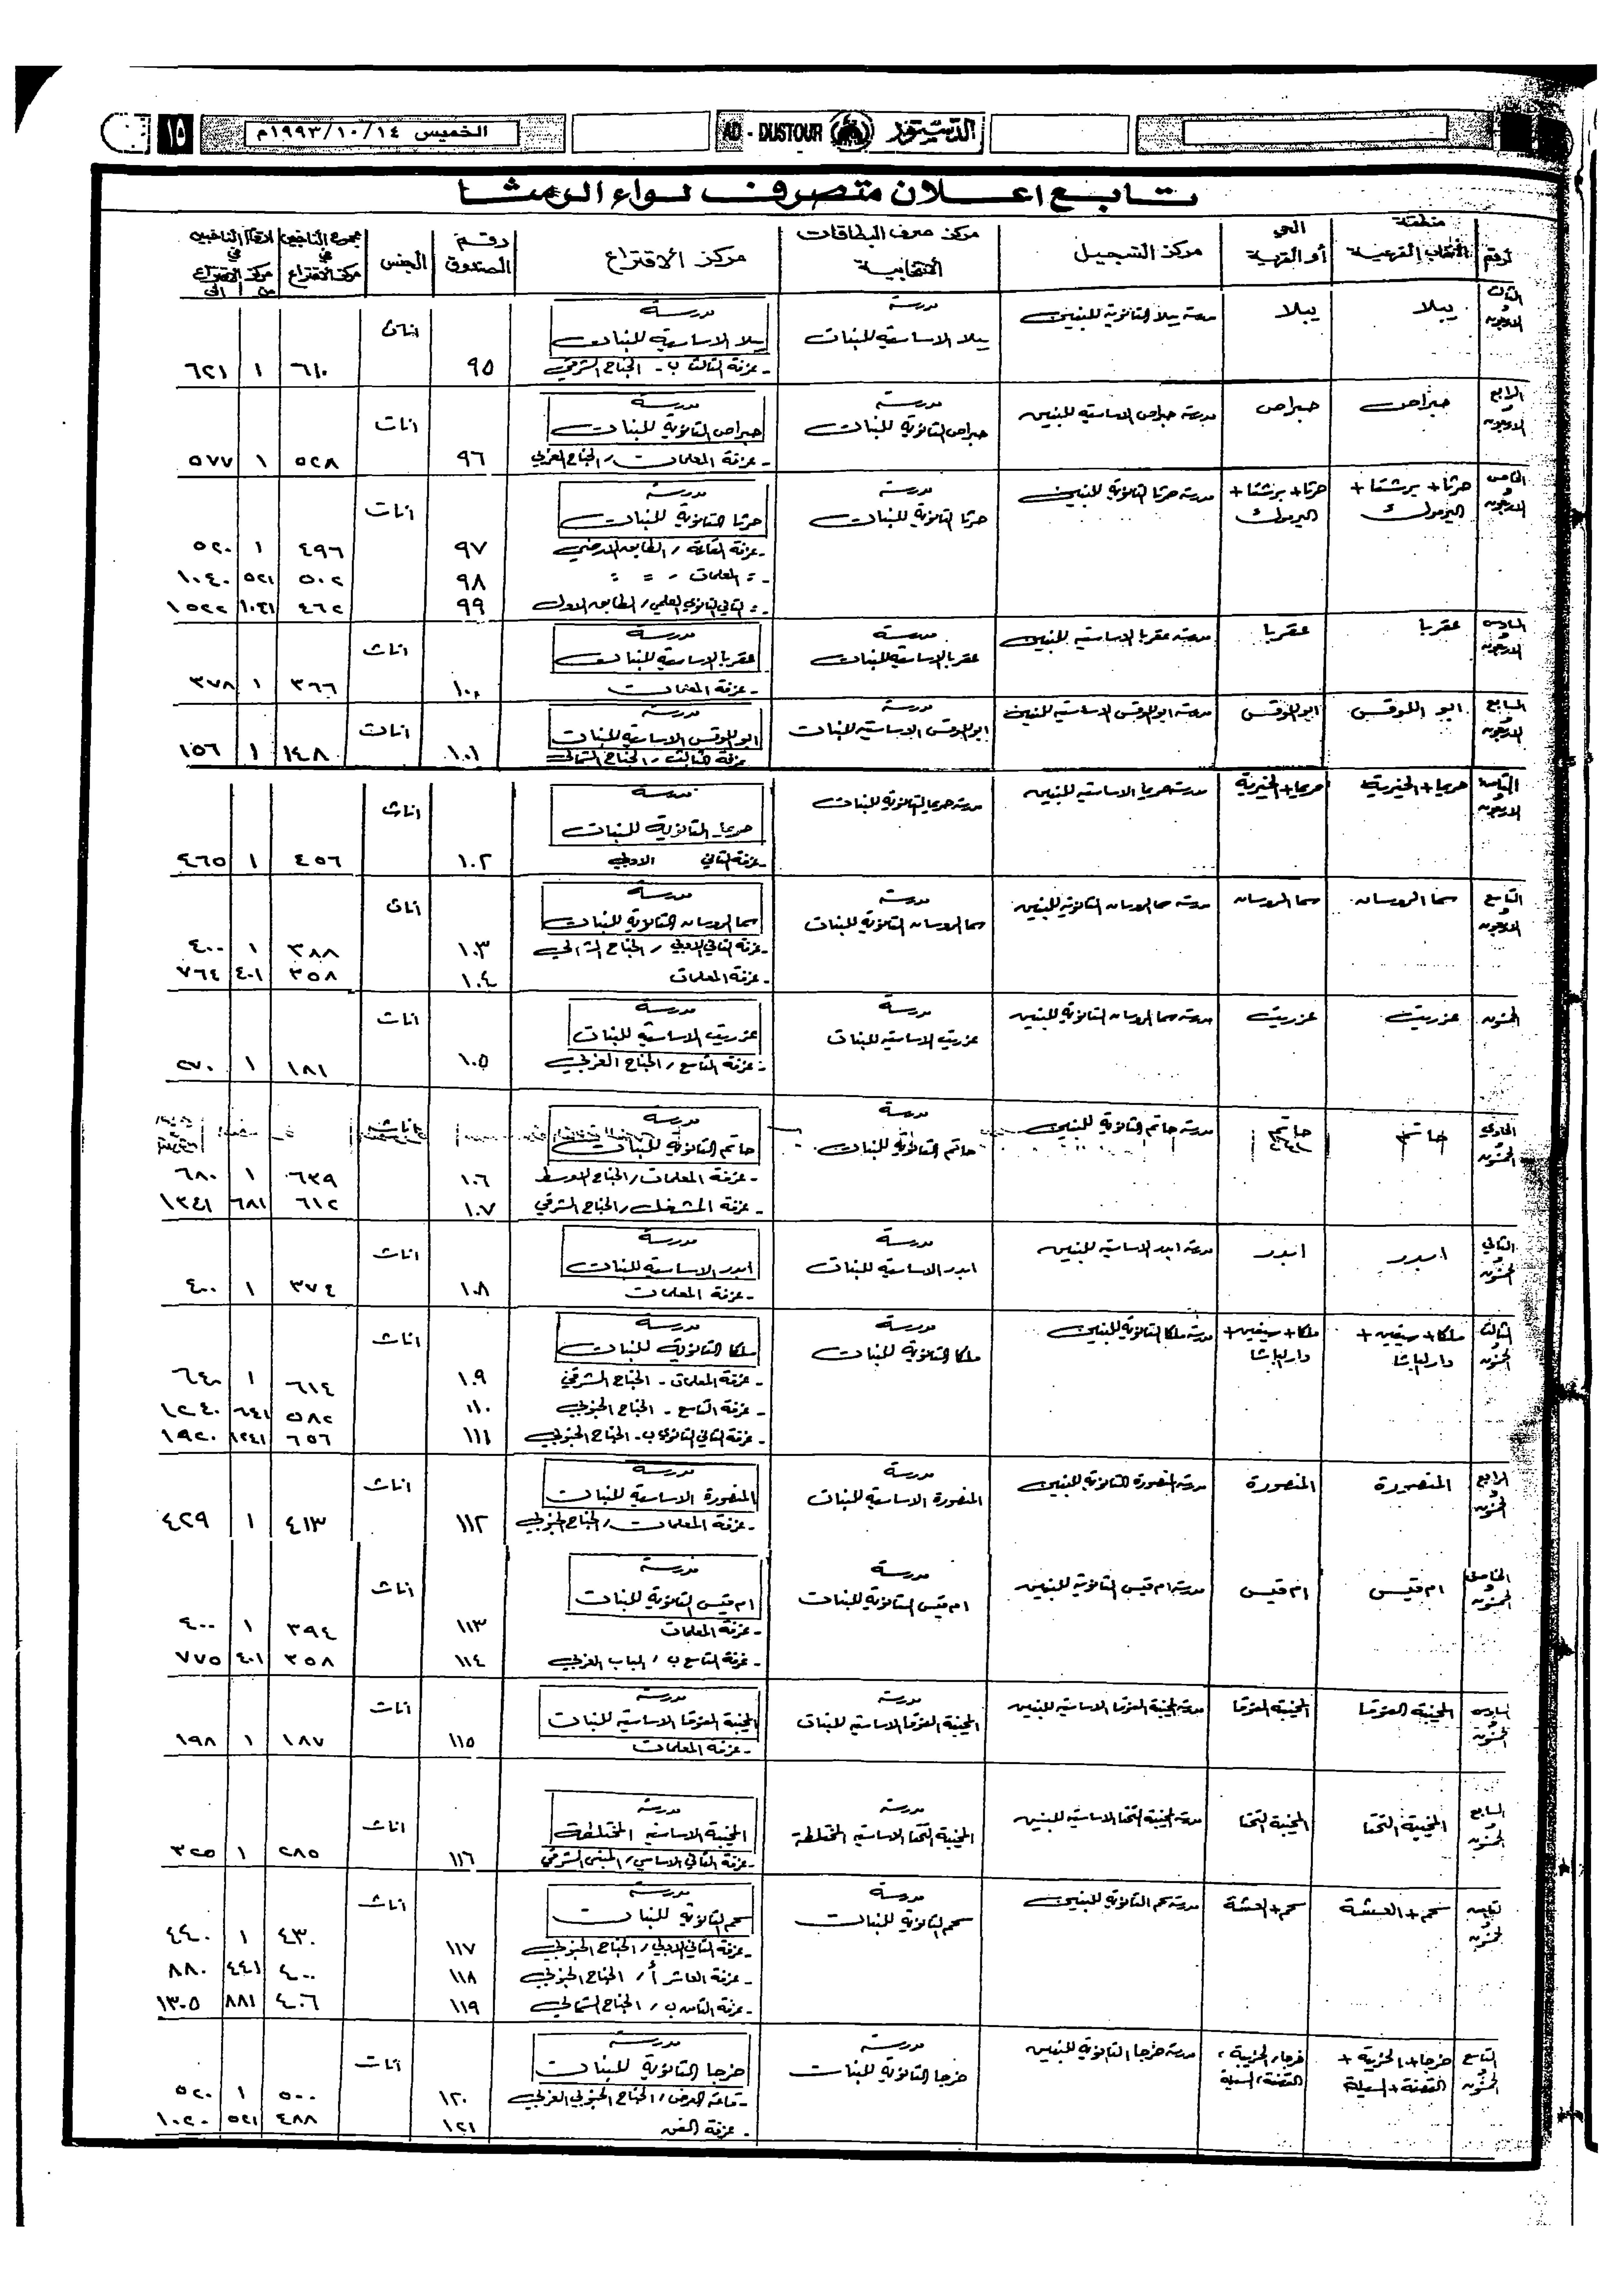 الخميس ١٤/١٠/١٩٩٣م
١٥
AD - DUSTOUR الدستور
تابع اعلان متصرف لواء الرمثا
الرقم | منطقة الأنتخاب الفرعية | الحي أو القرية | مركز التسجيل | مركز صرف البطاقات الأنتخابية | مركز الأقتراع | رقم الصندوق | الجنس | مجموع الناخبين في مركز الاقتراع | ارقام الناخبين في مركز الاقتراع من الى
الثالث والاربعون | يبلا | يبلا | مدرسة يبلا الثانوية للبنين | مدرسة يبلا الاساسية للبنات | مدرسة يبلا الاساسية للبنات | اناث
- غرفة الثالث ب - الجناح الشرقي | ٩٥ | ٦١٠ | ١ | ٦٢١
الرابع والاربعون | حبراص | حبراص | مدرسة حبراص الاساسية للبنين | مدرسة حبراص الثانوية للبنات | مدرسة حبراص الثانوية للبنات | اناث
- غرفة المعلمات / الجناح الغربي | ٩٦ | ٥٢٨ | ١ | ٥٧٧
الخامس والاربعون | حرثا + برشتا + اليرموك | حرثا + برشتا + اليرموك | مدرسة حرثا الثانوية للبنين | مدرسة حرثا الثانوية للبنات | مدرسة حرثا الثانوية للبنات | اناث
- غرفة القاعة / الطابق الارضي | ٩٧ | ٤٩٦ | ١ | ٥٢٠
- = المعلمات / = = | ٩٨ | ٥٠٢ | ٥٢١ | ١٠٤٠
- = الثاني الثانوي العلمي / الطابق الاول | ٩٩ | ٤٦٢ | ١٠٤١ | ١٥٢٢
السادس والاربعون | عقربا | عقربا | مدرسة عقربا الاساسية للبنين | مدرسة عقربا الاساسية للبنات | مدرسة عقربا الاساسية للبنات | اناث
- غرفة المعلمات | ١٠٠ | ٣٦٦ | ١ | ٣٧٨
السابع والاربعون | ابو اللوقس | ابو اللوقس | مدرسة ابو اللوقس الاساسية للبنين | مدرسة ابو اللوقس الاساسية للبنات | مدرسة ابو اللوقس الاساسية للبنات | اناث
غرفة الثالث / الجناح الشمالي | ١٠١ | ١٤٨ | ١ | ١٥٦
الثامن والاربعون | حريما + الخيرية | حريما + الخيرية | مدرسة حريما الاساسية للبنين | مدرسة حريما الثانوية للبنات | مدرسة حريما الثانوية للبنات | اناث
- غرفة الثاني الادبي | ١٠٢ | ٤٥٦ | ١ | ٤٦٥
التاسع والاربعون | سما الروسان | سما الروسان | مدرسة سما الروسان الثانوية للبنين | مدرسة سما الروسان الثانوية للبنات | مدرسة سما الروسان الثانوية للبنات | اناث
- غرفة الثاني الادبي / الجناح الشمالي | ١٠٣ | ٣٨٨ | ١ | ٤٠٠
- غرفة المعلمات | ١٠٤ | ٣٥٨ | ٤٠١ | ٧٦٤
الخمسون | عزريت | عزريت | مدرسة سما الروسان الثانوية للبنين | مدرسة عزريت الاساسية للبنات | مدرسة عزريت الاساسية للبنات | اناث
- غرفة التاسع / الجناح الغربي | ١٠٥ | ١٨١ | ١ | ٢٧٠
الحادي والخمسون | حاتم | حاتم | مدرسة حاتم الثانوية للبنين | مدرسة حاتم الثانوية للبنات | مدرسة حاتم الثانوية للبنات | اناث
- غرفة المعلمات / الجناح الاوسط | ١٠٦ | ٦٣٩ | ١ | ٦٨٠
- غرفة المشغل / الجناح الشرقي | ١٠٧ | ٦١٢ | ٦٨١ | ١٣٤١
الثاني والخمسون | ابدر | ابدر | مدرسة ابدر الاساسية للبنين | مدرسة ابدر الاساسية للبنات | مدرسة ابدر الاساسية للبنات | اناث
- غرفة المعلمات | ١٠٨ | ٣٧٤ | ١ | ٤٠٠
الثالث والخمسون | ملكا + سيفين + دار الباشا | ملكا + سيفين + دار الباشا | مدرسة ملكا الثانوية للبنين | مدرسة ملكا الثانوية للبنات | مدرسة ملكا الثانوية للبنات | اناث
- غرفة المعلمات - الجناح الشرقي | ١٠٩ | ٦١٤ | ١ | ٦٤٠
- غرفة التاسع - الجناح الجنوبي | ١١٠ | ٥٨٢ | ٦٤١ | ١٢٤٠
- غرفة الثاني الثانوي ب - الجناح الجنوبي | ١١١ | ٦٥٦ | ١٢٤١ | ١٩٢٠
الرابع والخمسون | المنصورة | المنصورة | مدرسة المنصورة الثانوية للبنين | مدرسة المنصورة الاساسية للبنات | مدرسة المنصورة الاساسية للبنات | اناث
- غرفة المعلمات / الجناح الجنوبي | ١١٢ | ٤١٣ | ١ | ٤٢٩
الخامس والخمسون | ام قيس | ام قيس | مدرسة ام قيس الثانوية للبنين | مدرسة ام قيس الثانوية للبنات | مدرسة ام قيس الثانوية للبنات | اناث
- غرفة المعلمات | ١١٣ | ٣٩٤ | ١ | ٤٠٠
- غرفة التاسع ب / الباب الغربي | ١١٤ | ٣٥٨ | ٤٠١ | ٧٧٥
السادس والخمسون | المخيبة الفوقا | المخيبة الفوقا | مدرسة المخيبة الفوقا الاساسية للبنين | مدرسة المخيبة الفوقا الاساسية للبنات | مدرسة المخيبة الفوقا الاساسية للبنات | اناث
- غرفة المعلمات | ١١٥ | ١٨٧ | ١ | ١٩٨
السابع والخمسون | المخيبة التحتا | المخيبة التحتا | مدرسة المخيبة التحتا الاساسية للبنين | مدرسة المخيبة التحتا الاساسية المختلطة | مدرسة المخيبة الاساسية المختلطة | اناث
- غرفة الثاني الاساسي / المبنى الشرقي | ١١٦ | ٢٨٥ | ١ | ٣٢٥
الثامن والخمسون | سحم + العشة | سحم + العشة | مدرسة سحم الثانوية للبنين | مدرسة سحم الثانوية للبنات | مدرسة سحم الثانوية للبنات | اناث
- غرفة الثاني الادبي / الجناح الجنوبي | ١١٧ | ٤٣٠ | ١ | ٤٤٠
- غرفة العاشر أ / الجناح الجنوبي | ١١٨ | ٤٠٠ | ٤٤١ | ٨٨٠
- غرفة الثامن ب / الجناح الشمالي | ١١٩ | ٤٠٦ | ٨٨١ | ١٣٠٥
التاسع والخمسون | خرجا + الخربة + | خرجا / الخربة / | مدرسة خرجا الثانوية للبنين | مدرسة خرجا الثانوية للبنات | مدرسة خرجا الثانوية للبنات | اناث
- قاعة العرض / الجناح الجنوبي الغربي | ١٢٠ | ٥٠٠ | ١ | ٥٢٠
- غرفة الفن | ١٢١ | ٤٨٨ | ٥٢١ | ١٠٢٠